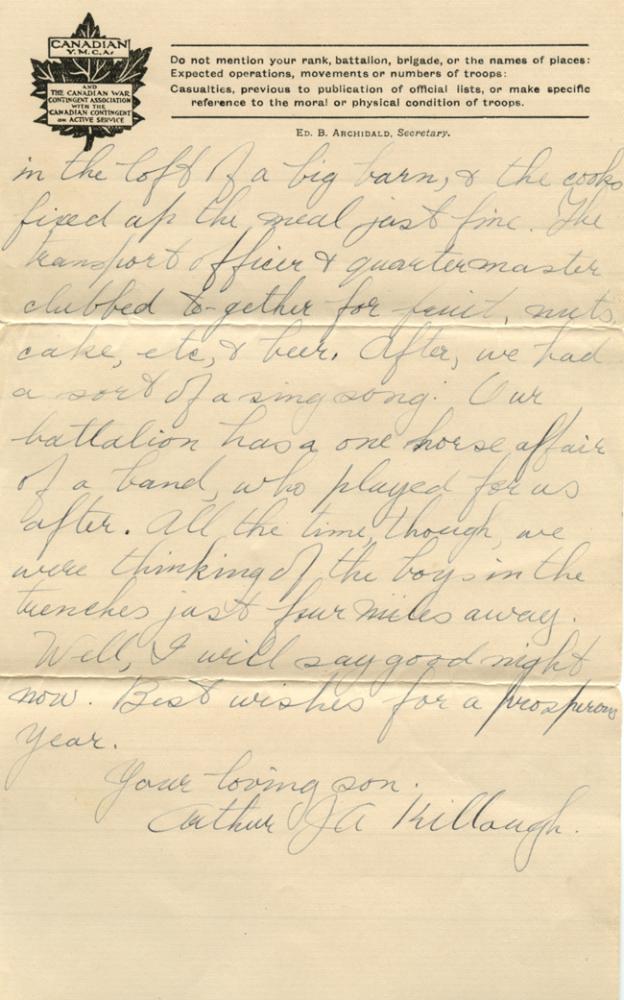 CANADIAN
Y.M.C.A.
AND
THE CANADIAN WAR
CONTINGENT ASSOCIATION
WITH THE
CANADIAN CONTINGENT
ON ACTIVE SERVICE
Do not mention your rank, battalion, brigade, or the names of places:
Expected operations, movements or numbers of troops:
Casualties, previous to publication of official lists, or make specific
reference to the moral or physical condition of troops.
ED. B. ARCHIBALD, Secretary.
in the loft of a big barn, & the cooks
fixed up the meal just fine. The
transport officer & quartermaster
clubbed to-gether for fruit, nuts,
cake, etc, & beer. After, we had
a sort of a sing song. Our
battalion has a one horse affair
of a band, who played for us
after. All the time, though, we
were thinking of the boys in the
trenches just four miles away.
Well, I will say good night
now. Best wishes for a prosperous
year.
Your loving son.
Arthur JA Killough.